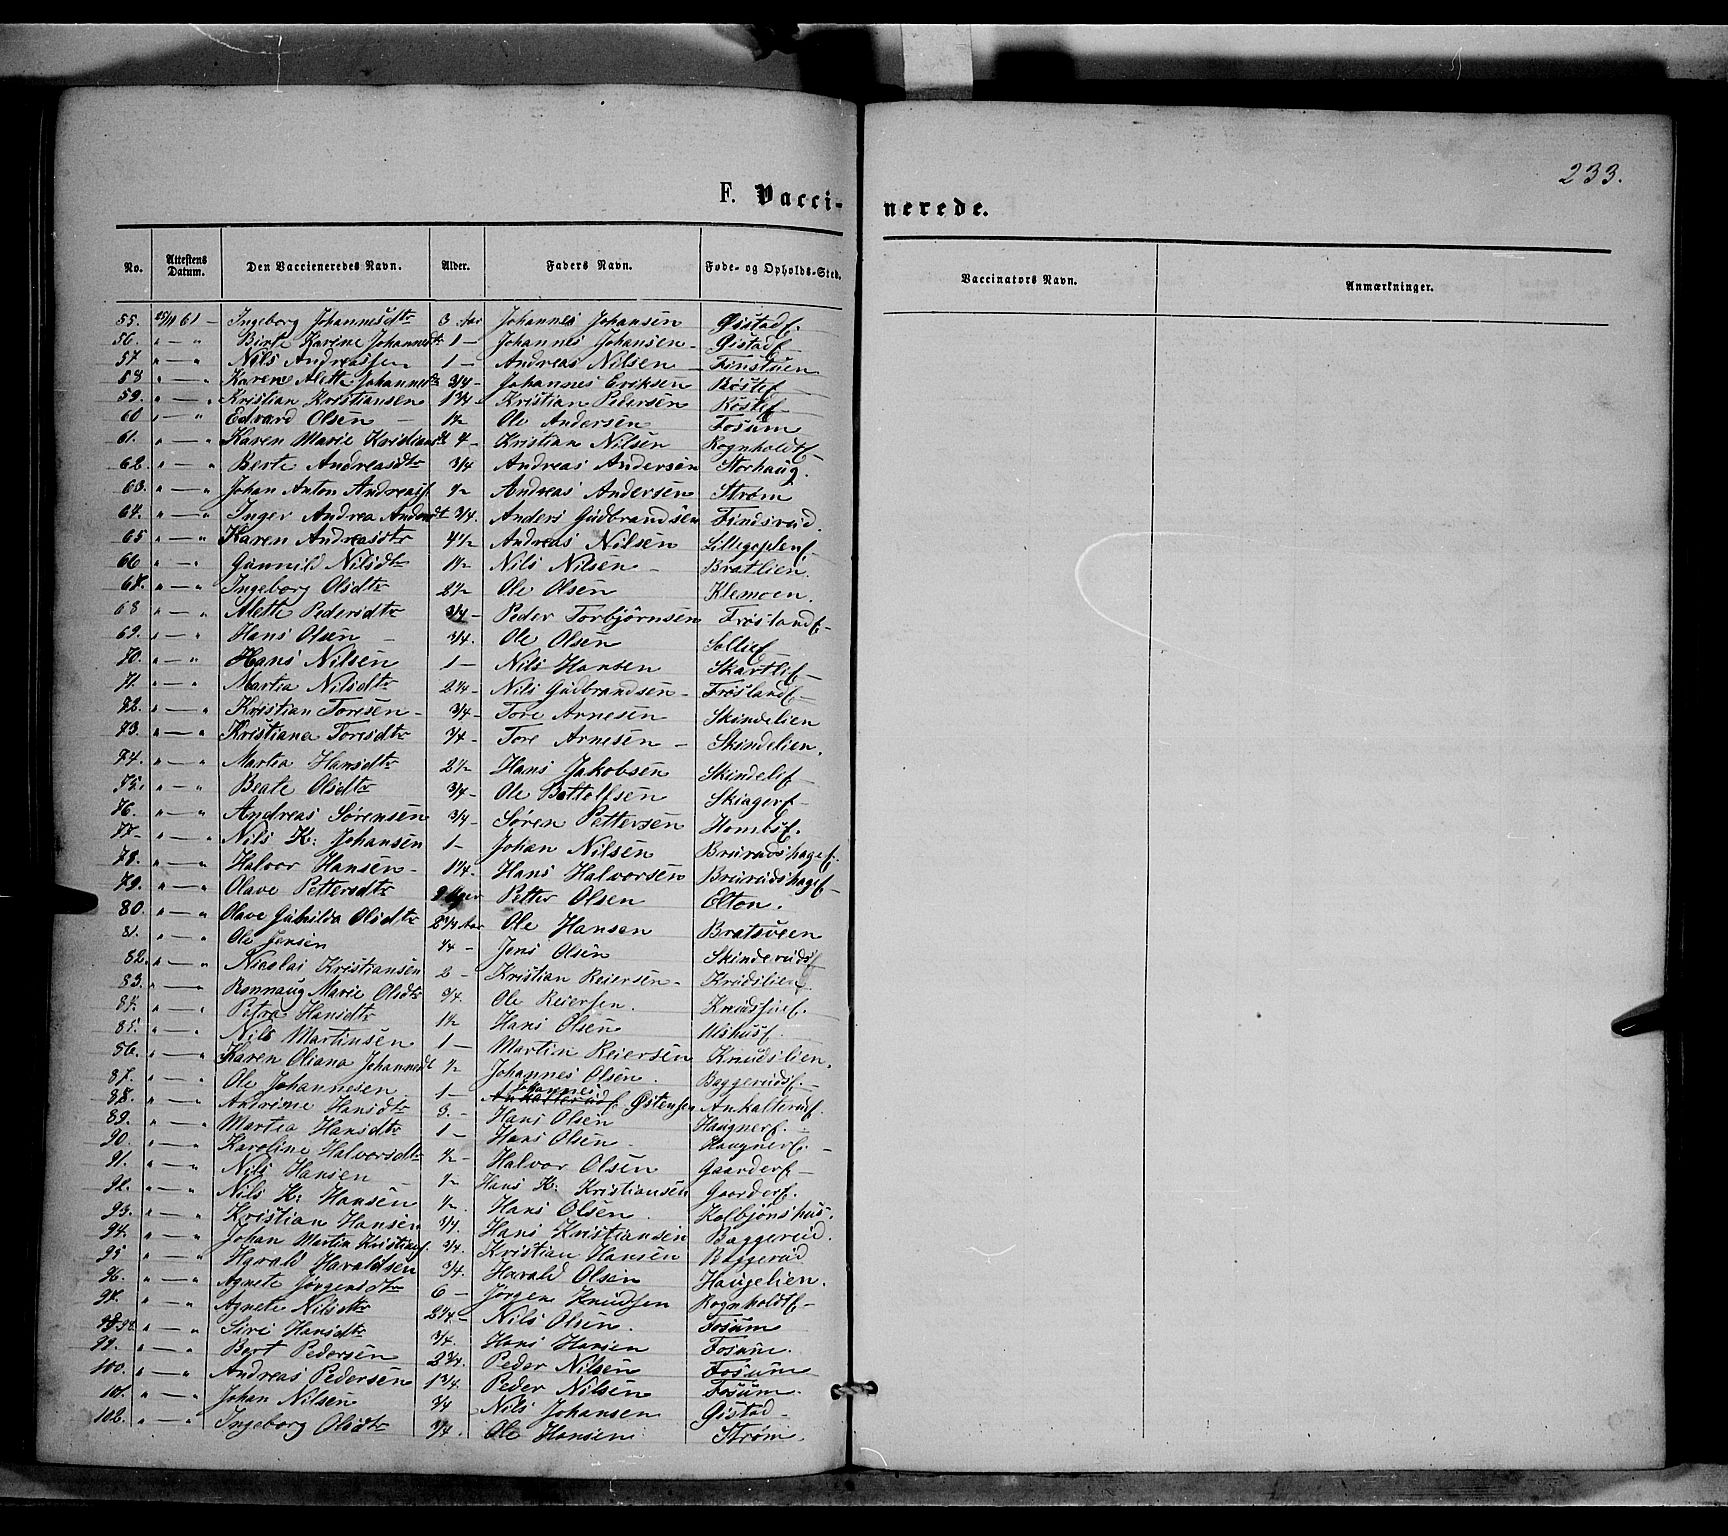 233.
F. Vacci- nerede.
No. Attestens Datum. Den Vaccieneredes Navn. Alder. Faders Navn. Føde- og Opholds-Sted. Vaccinators Navn. Anmærkninger.
55. 25/11 61 - Ingeborg Johannesdtr 3 Aar Johannes Johansen Gistadf.
56. " - " Birte Karine Johannesdt 1 - Johannes Johansen - Gistadf
57. " - " Nils Andreassen 1 - Andreas Nilsen - Finstuen
58 " - " Karen Alette Johannesdtr 3/4 - Johannes Eriksen Bøstef
59. " - " Kristian Kristiansen 1 3/4 - Kristian Pedersen Røstef
60 " - " Edvard Olsen - 1 1/2 Ole Andersen Fosum
61. " - " Karen Marie Kristiansdt 4 - Kristian Nilsen Rognholdtf
62. " - " Berte Andreasdtr 3/4 Andreas Andersen Storhaug.
63. " - " Johan Anton Andreasf 1/2 Andreas Andersen Strøm
64. " - " Inger Andrea Andersdt 3/4. Anders Gudbrandsen Findsrud.
65 " - " Karen Andreasdtr 4 1/2 Andreas Nilsen
66 " - " Gunnild Nilsdtr 1 1/2 Nils Nilsen - Bratlien.
67. " - " Ingeborg Olsdtr 2 1/2 Ole Olsen Klemoen.
68 " - " Alette Pedersdtr 3/4 - Peder Torbjørnsen Frøslandf -
69. " - " Hans Olsen - 3/4. Ole Olsen Sollief
70. " - " Hans Nilsen 1 - Nils Hansen Skartlif -
71. " - " Martia Nilsdtr 2 1/4 - Nils Gudbrandsen - Frøslandf -
72. " - " Kristian Toresen - 3/4 - Tore Arnesen Skindelien
73. " - " Kristiana Toresdtr 3/4 - Tore Arnesen - Skindelien.
74. " - " Martia Hansdtr 2 1/2 Hans Jakobsen Skindelif -
75. " - " Beate Olsdtr 3/4 - Ole Bottolfsen Skiagerf -
76. " - " Andreas Sørensen 3/4 - Søren Pettersen Hombsf.
77 - " - " Nils K: Johansen 1 - Johan Nilsen Breirudshagef.
78. " - " Halvor Hansen - 1 1/4 - Hans Halvorsen Breirudshagef -
79. " - " Olave Pettersdtr Petter Olsen Elton.
80. " - " Olave Gunilda Olsdtr 2 3/4 Aar Ole Hansen Bratsveen
81. " - " Ole Jensen 1/4 - Jens Olsen Skinderudsf
82. " - " Nicolai Kristiansen 2 - Kristian Reiersen - Knudslien
83. " - " Rønnaug Marie Olsdtr 3/4. Ole Reiersen.
84. " - " Petra Hansdtr 1 1/2 Hans Olsen Ulshusf.
85. " - " Nils Martinsen 1 - Martin Reiersen Knudslien.
86. " - " Karen Oliana Johannesdt 1/2 Johannes Olsen. Baggerudsf. -
87. " - " Ole Johannesen 1 - Johannes Østensen Ankalterudf.
88. " - " Andrine Hansdtr 3. - Hans Olsen Haugnerf. -
89. " - " Martia Hansdtr 1 - Hans Olsen - Haugnerf. -
90. " - " Karoline Halvorsdtr 1/2 - Halvor Olsen Gaarderf -
91. " - " Nils Hansen - 1/2 Hans K: Kristiansen Gaarderf.
92. " - " Nils K: Hansen 1/2. Hans Olsen. Kolbjønshus.
93. " - " Kristian Hansen 3/4. Hans Kristiansen Baggerud.
94. " - " Johan Martin Kristiansf. 3/4. Kristian Hansen Baggerud
95 " - " Harald Haraldsen 3/4. Harald Olsen Haugelien.
96. " - " Agnete Jørgensdtr 6 - Jørgen Knudsen Rognholdtf -
97. " - " Agnete Nilsdtr 2 1/4. - Nils Olsen. Fosum
98. " - " Siri Hansdtr 3/4. Hans Hansen Fosum.
99. " - " Bert Pedersen 2 3/4. Peder Nilsen Fosum
100. " - " Andreas Pedersen 1 3/4. Peder Nilsen Fosum.
101. " - " Johan Nilsen 3/4 Nils Johansen Gistad -
102. " - " Ingeborg Olsdtr 3/4. Ole Hansen Strøm.